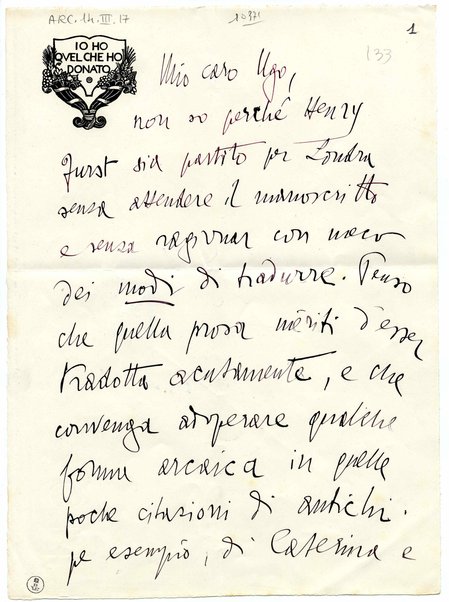 ARC. 14. III. 17
1
133
IO HO
QVEL CHE HO
DONATO
Mio caro Ugo,
non so perché Henry
Furst sia partito per Londra
senza attendere il manoscritto
e senza ragionar con meco
dei modi di tradurre. Penso
che quella prosa mèriti d'esser
tradotta acutamente, e che
convenga adoperare qualche
forma arcaica in quelle
poche citazioni di antichi.
pe esempio, di Caterina e